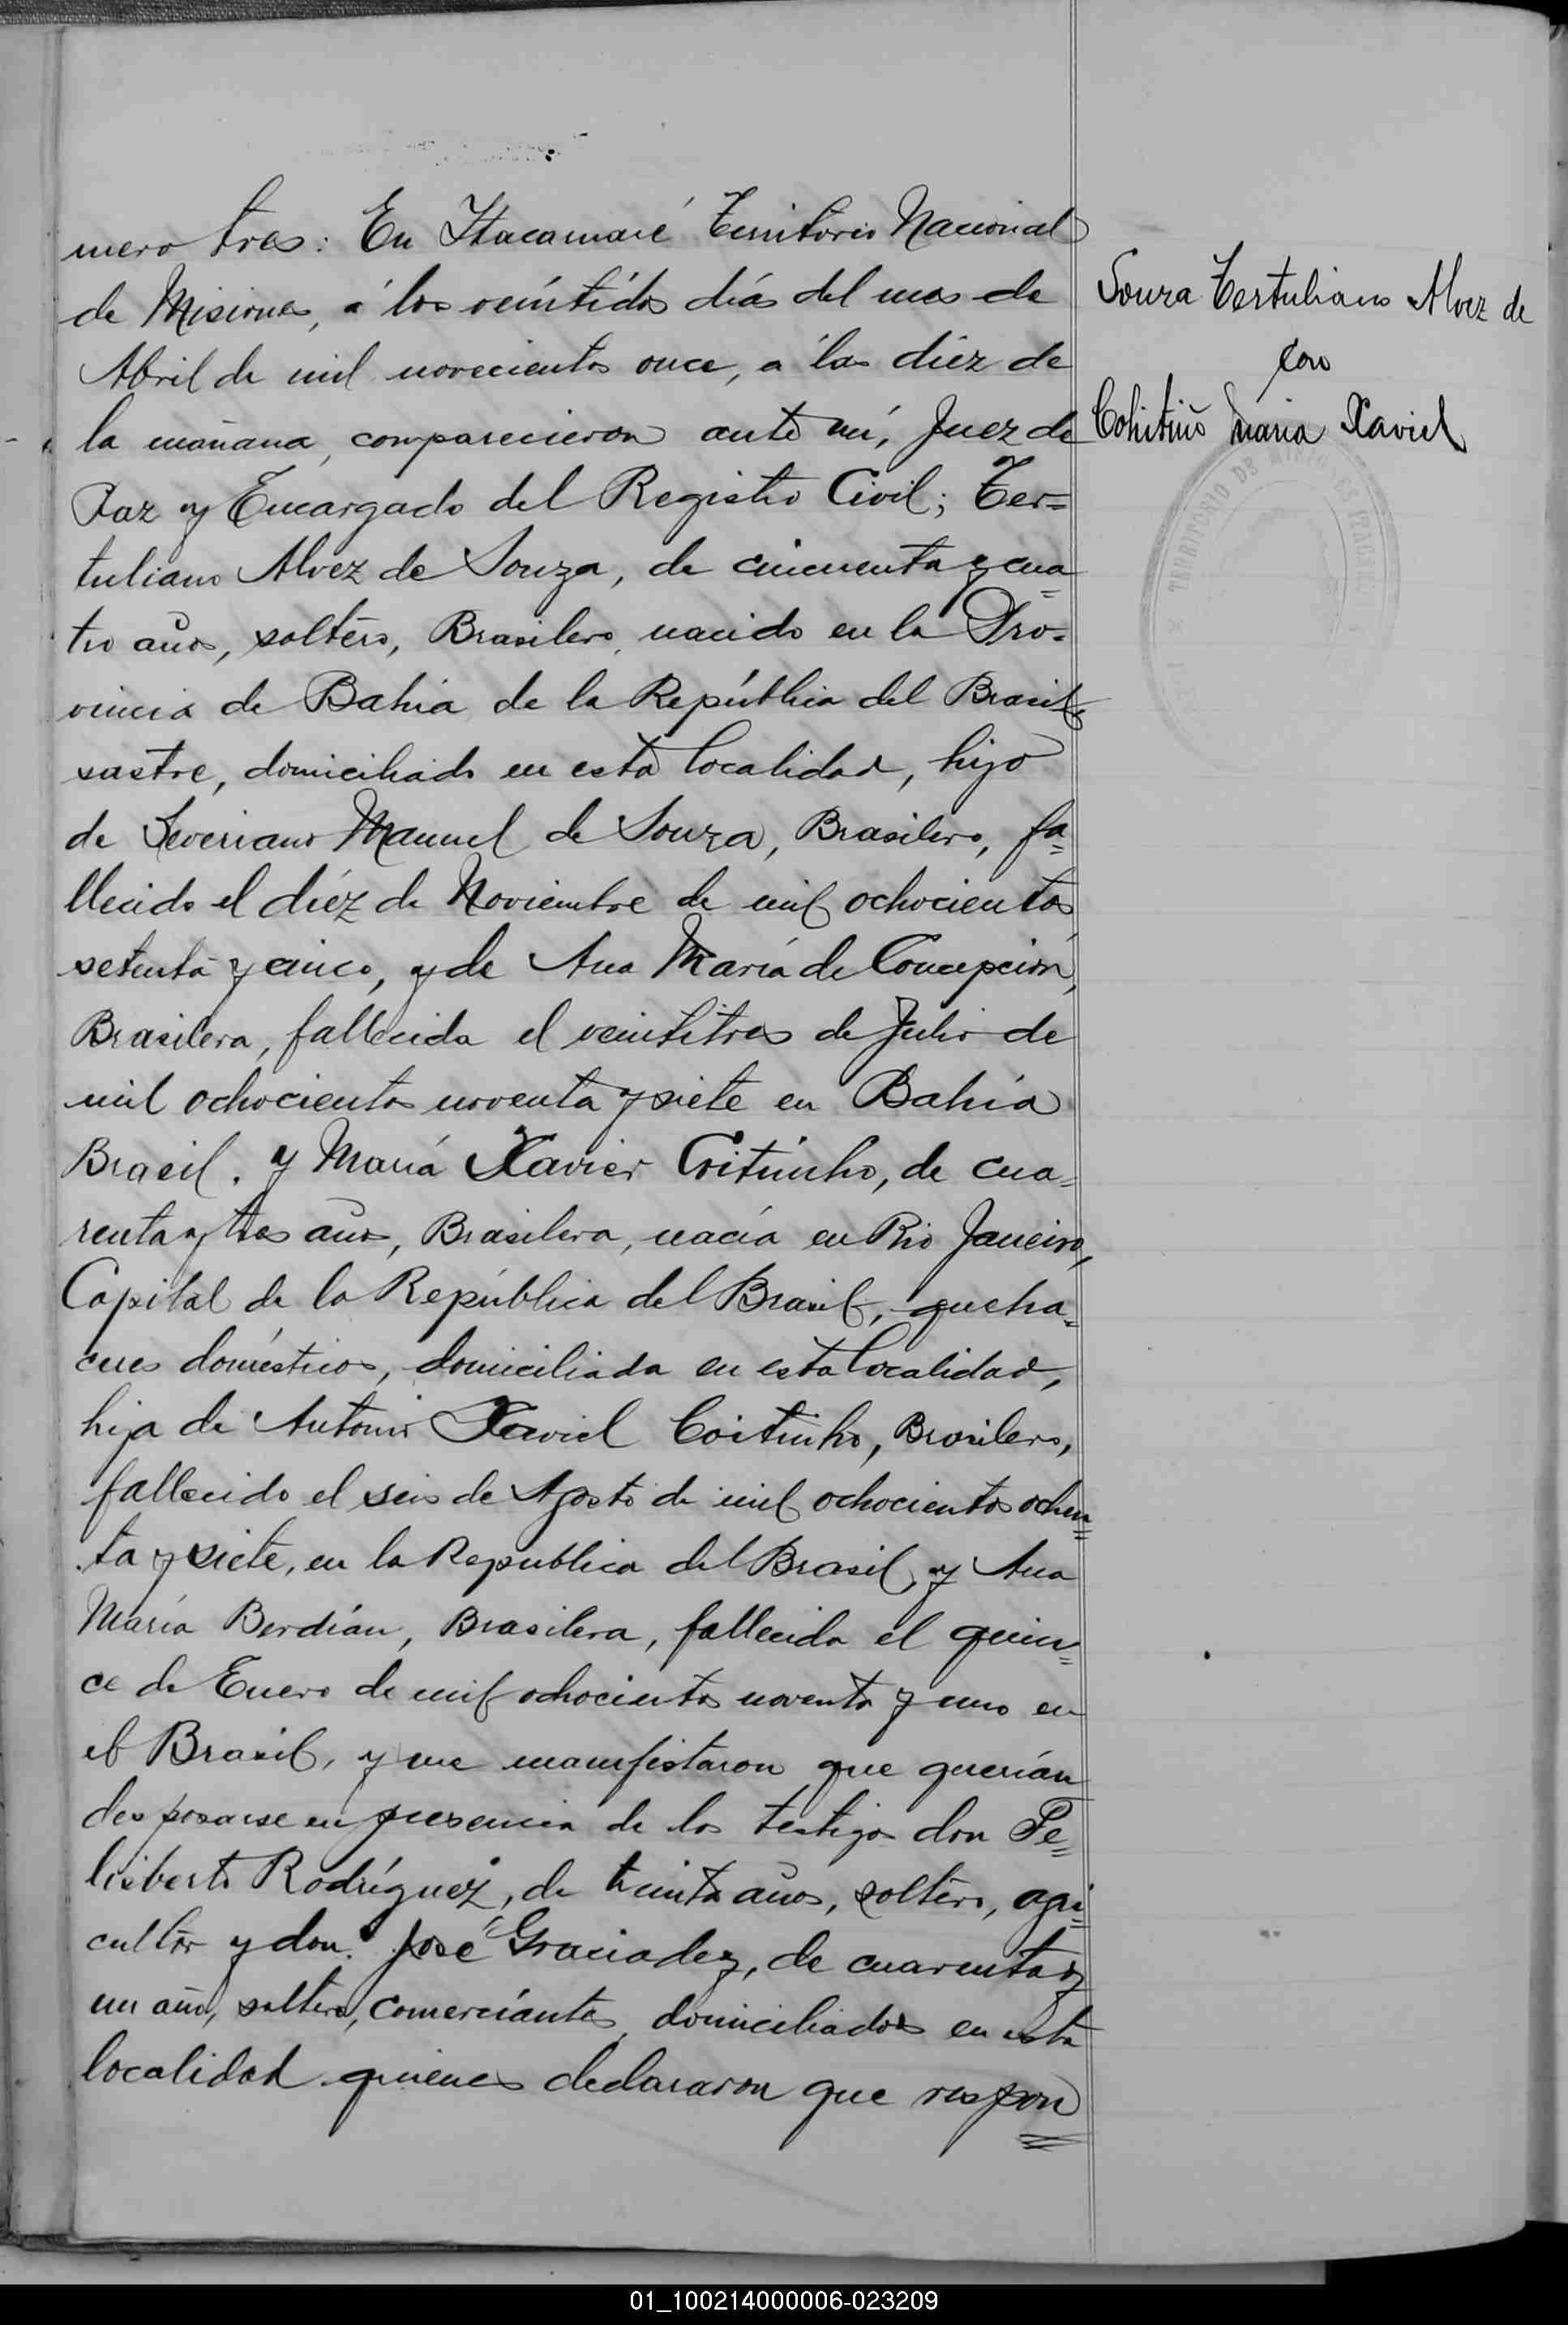 mero tres: En Itacamaré Territorio Nacional
de Misiones, á los veintidos días del mes de
Abril de mil novecientos once, a las diéz de
la mañana, comparecieron ante mí, Juez de
Paz y Encargado del Registro Civil; Ter=
tuliano Alvez de Souza, de cincuenta y cua=
tro años, soltero, Brasilero, nacido en la Pro-
vincia de Bahia de la República del Brasil,
sastre, domiciliado en esta localidad, hijo
de Severiano Manuel de Souza, Brasilero, fa=
llecido el diéz de Noviembre de mil ochocientos
setenta y cinco, y de Ana María de Concepción,
Brasilera, fallecida el veintitres de Julio de
mil ochocientos noventa y siete en Bahía
Brasil. y María Xavier Coitinho, de cua=
renta y tres años, Brasilera, nacía en Rio Janeiro,
Capital de la República del Brasil, queha=
ceres domésticos, domiciliada en esta localidad,
hija de Antonio Xaviel Coitinho, Brasilero,
fallecido el seis de Agosto de mil ochocientos ochen=
ta y siete, en la Republica del Brasil, y Ana
María Berdián, Brasilera, fallecida el quin=
ce de Enero de mil ochocientos noventa y uno en
el Brasil, y me manifestaron que querían
desposarse en presencia de los testigos don Fe=
lisberto Rodríguez, de treinta años, soltero, agri=
cultor y don José Graciadez, de cuarenta y
un año, soltero, comerciantes, domiciliados en esta
localidad quienes declararon que respon=
Souza Tertuliano Alvez de
con
Cohitiño María Xaviel
TERRITORIO DE MISIONES
01_100214000006-023209